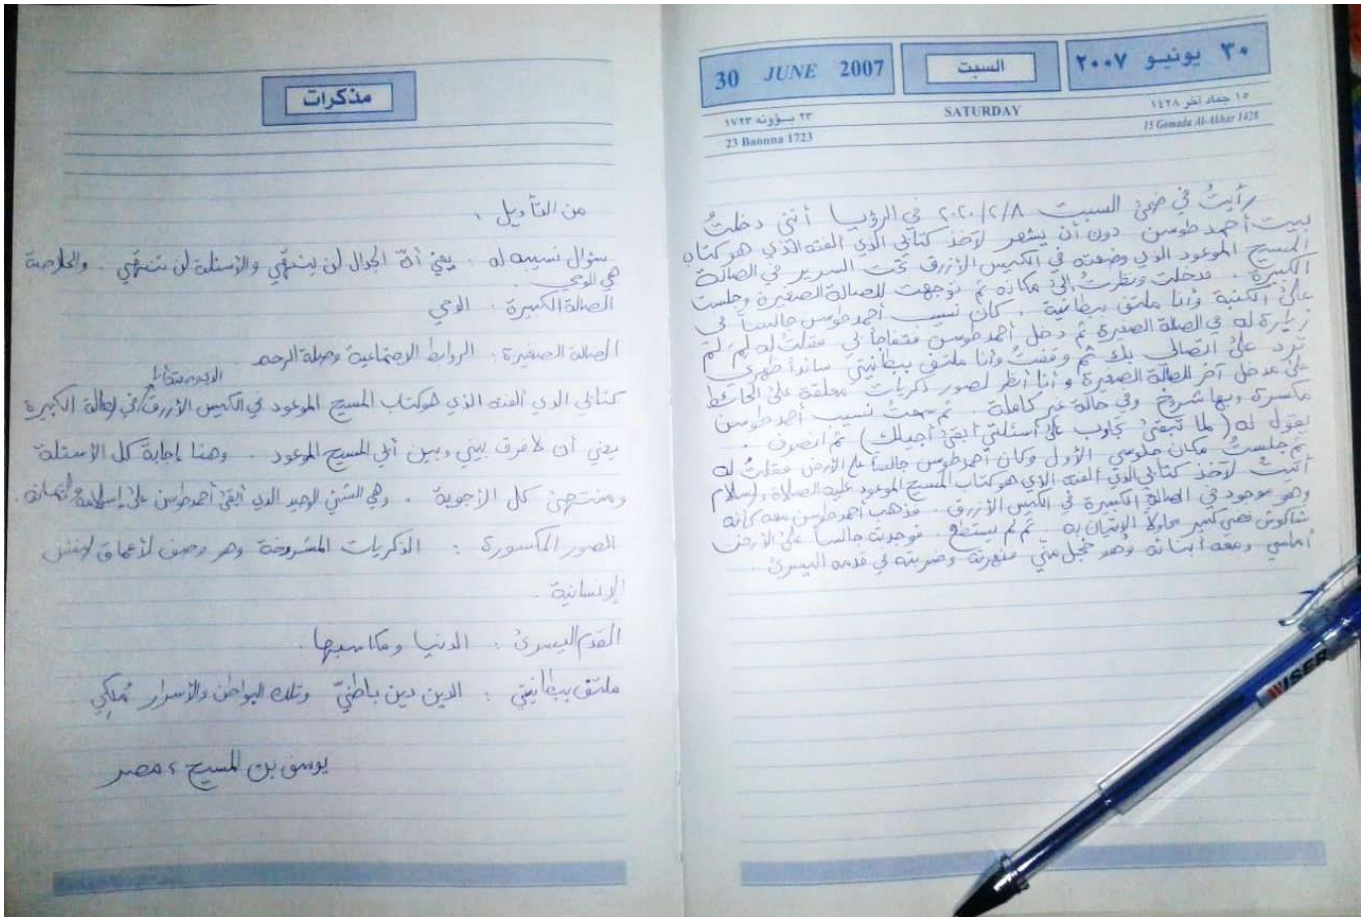 ٣٠ يونيو ٢٠٠٧
السبت
30 JUNE 2007
١٥ جماد آخر ١٤٢٨
SATURDAY
٢٣ بؤونه ١٧٢٣
15 Gamada Al-Akhar 1428
23 Baonna 1723
رأيتُ في ضحى السبت ٢٠٢٠/٢/٨ في الرؤيا أنني دخلتُ
بيت أحمد طوسن دون أن يشعر لآخذ كتابي الذي ألفته الذي هو كتاب
المسيح الموعود الذي وضعته في الكيس الأزرق تحت السرير في الصالة
الكبيرة . فدخلت ونظرتُ إلى مكانه ثم توجهت للصالة الصغيرة وجلست
على الكنبة وأنا ملتف ببطانية . كان نسيب أحمد طوسن جالساً في
زيارة له في الصالة الصغيرة ثم دخل أحمد طوسن فتفاجأ بي فقلتُ له لِمَ لَمْ
تردّ على اتصالي بك ثم وقفتُ وأنا ملتف ببطانيتي ساندا ظهري
على مدخل آخر للصالة الصغيرة وأنا أنظر لصور ذكريات معلقة على الحائط
مكسرة وبها شروخ وفي حالة غير كاملة . ثم سمعتُ نسيب أحمد طوسن
يقول له ( لما تبقى تجاوب على أسئلتي أبقى أجيلك ) ثم انصرف .
ثم جلستُ مكان جلوسي الأول وكان أحمد طوسن جالساً على الأرض فقلتُ له
أتيتُ لآخذ كتابي الذي ألفته الذي هو كتاب المسيح الموعود عليه الصلاة والسلام
وهو موجود في الصالة الكبيرة في الكيس الأزرق . فذهب أحمد طوسن معه كأنه
شاكوش فضي كبير محاولا الإتيان به . ثم لم يستطع . فوجدته جالساً على الأرض
أمامي ومعه أبنائه وهو خجل منّي فنهرته وضربته في قدمه اليسرى .
WISER
مذكرات
من التأويل :
سؤال نسيبه له : يعني أنّ الجدال لن ينتهي والأسئلة لن تنتهي . والخلاصة
هي الوحي .
الصالة الكبيرة : الوحي
الصالة الصغيرة : الروابط الاجتماعية وصلة الرحم
كتابي الذي ألفته الذي هو كتاب المسيح الموعود في الكيس الأزرق في الصالة الكبيرة
يعني أن لا فرق بيني وبين أبي المسيح الموعود . وهنا إجابة كل الأسئلة
ومنتهى كل الأجوبة . وهي الشيء الوحيد الذي أبقى أحمد طوسن على إسلامه
الصور المكسورة : الذكريات المشروخة وهو وصف لأعماق النفس
الإنسانية .
القدم اليسرى : الدنيا ومكاسبها .
ملتف ببطانيتي : الدين دين باطنيّ وتلك البواطن والأسرار
يوسف بن المسيح ، مصر